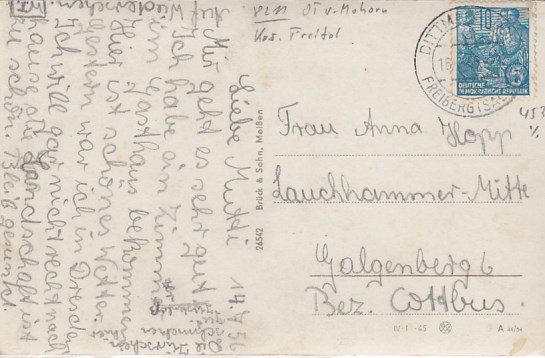 PLM OT v. Mohorn
Krs. Freital
DITTM
18
FREIBERG (SA
DEUTSCHE
DEMOKRATISCHE REPUBLIK
5
453
Liebe Mutti 17.7.56
Mir geht es sehr gut
Ich habe ein Zimmer
im Gasthaus bekommen
Hier ist schönes Wetter.
Gestern war ich in Dresden
Ich will gar nicht recht nach
Hause die Landschaft ist
zu schön. Bleib gesund.
Auf Wiedersehen
Die Kirschen
schmecken hier
Frau Anna Hopp
Lauchhammer-Mitte
Galgenberg 6
Bez. Cottbus.
26542 Brück & Sohn, Meißen
A